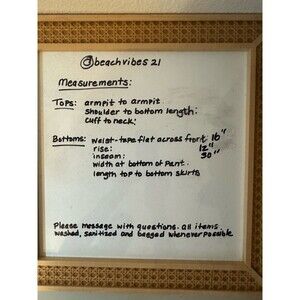 @beachvibes21
Measurements:
Tops: armpit to armpit
shoulder to bottom length:
cuff to neck:
Bottoms: waist-tape flat across front 16"
rise: 12"
inseam: 30"
width at bottom of pant.
length top to bottom skirts
Please message with questions. All items
washed, sanitized and bagged whenever possible.